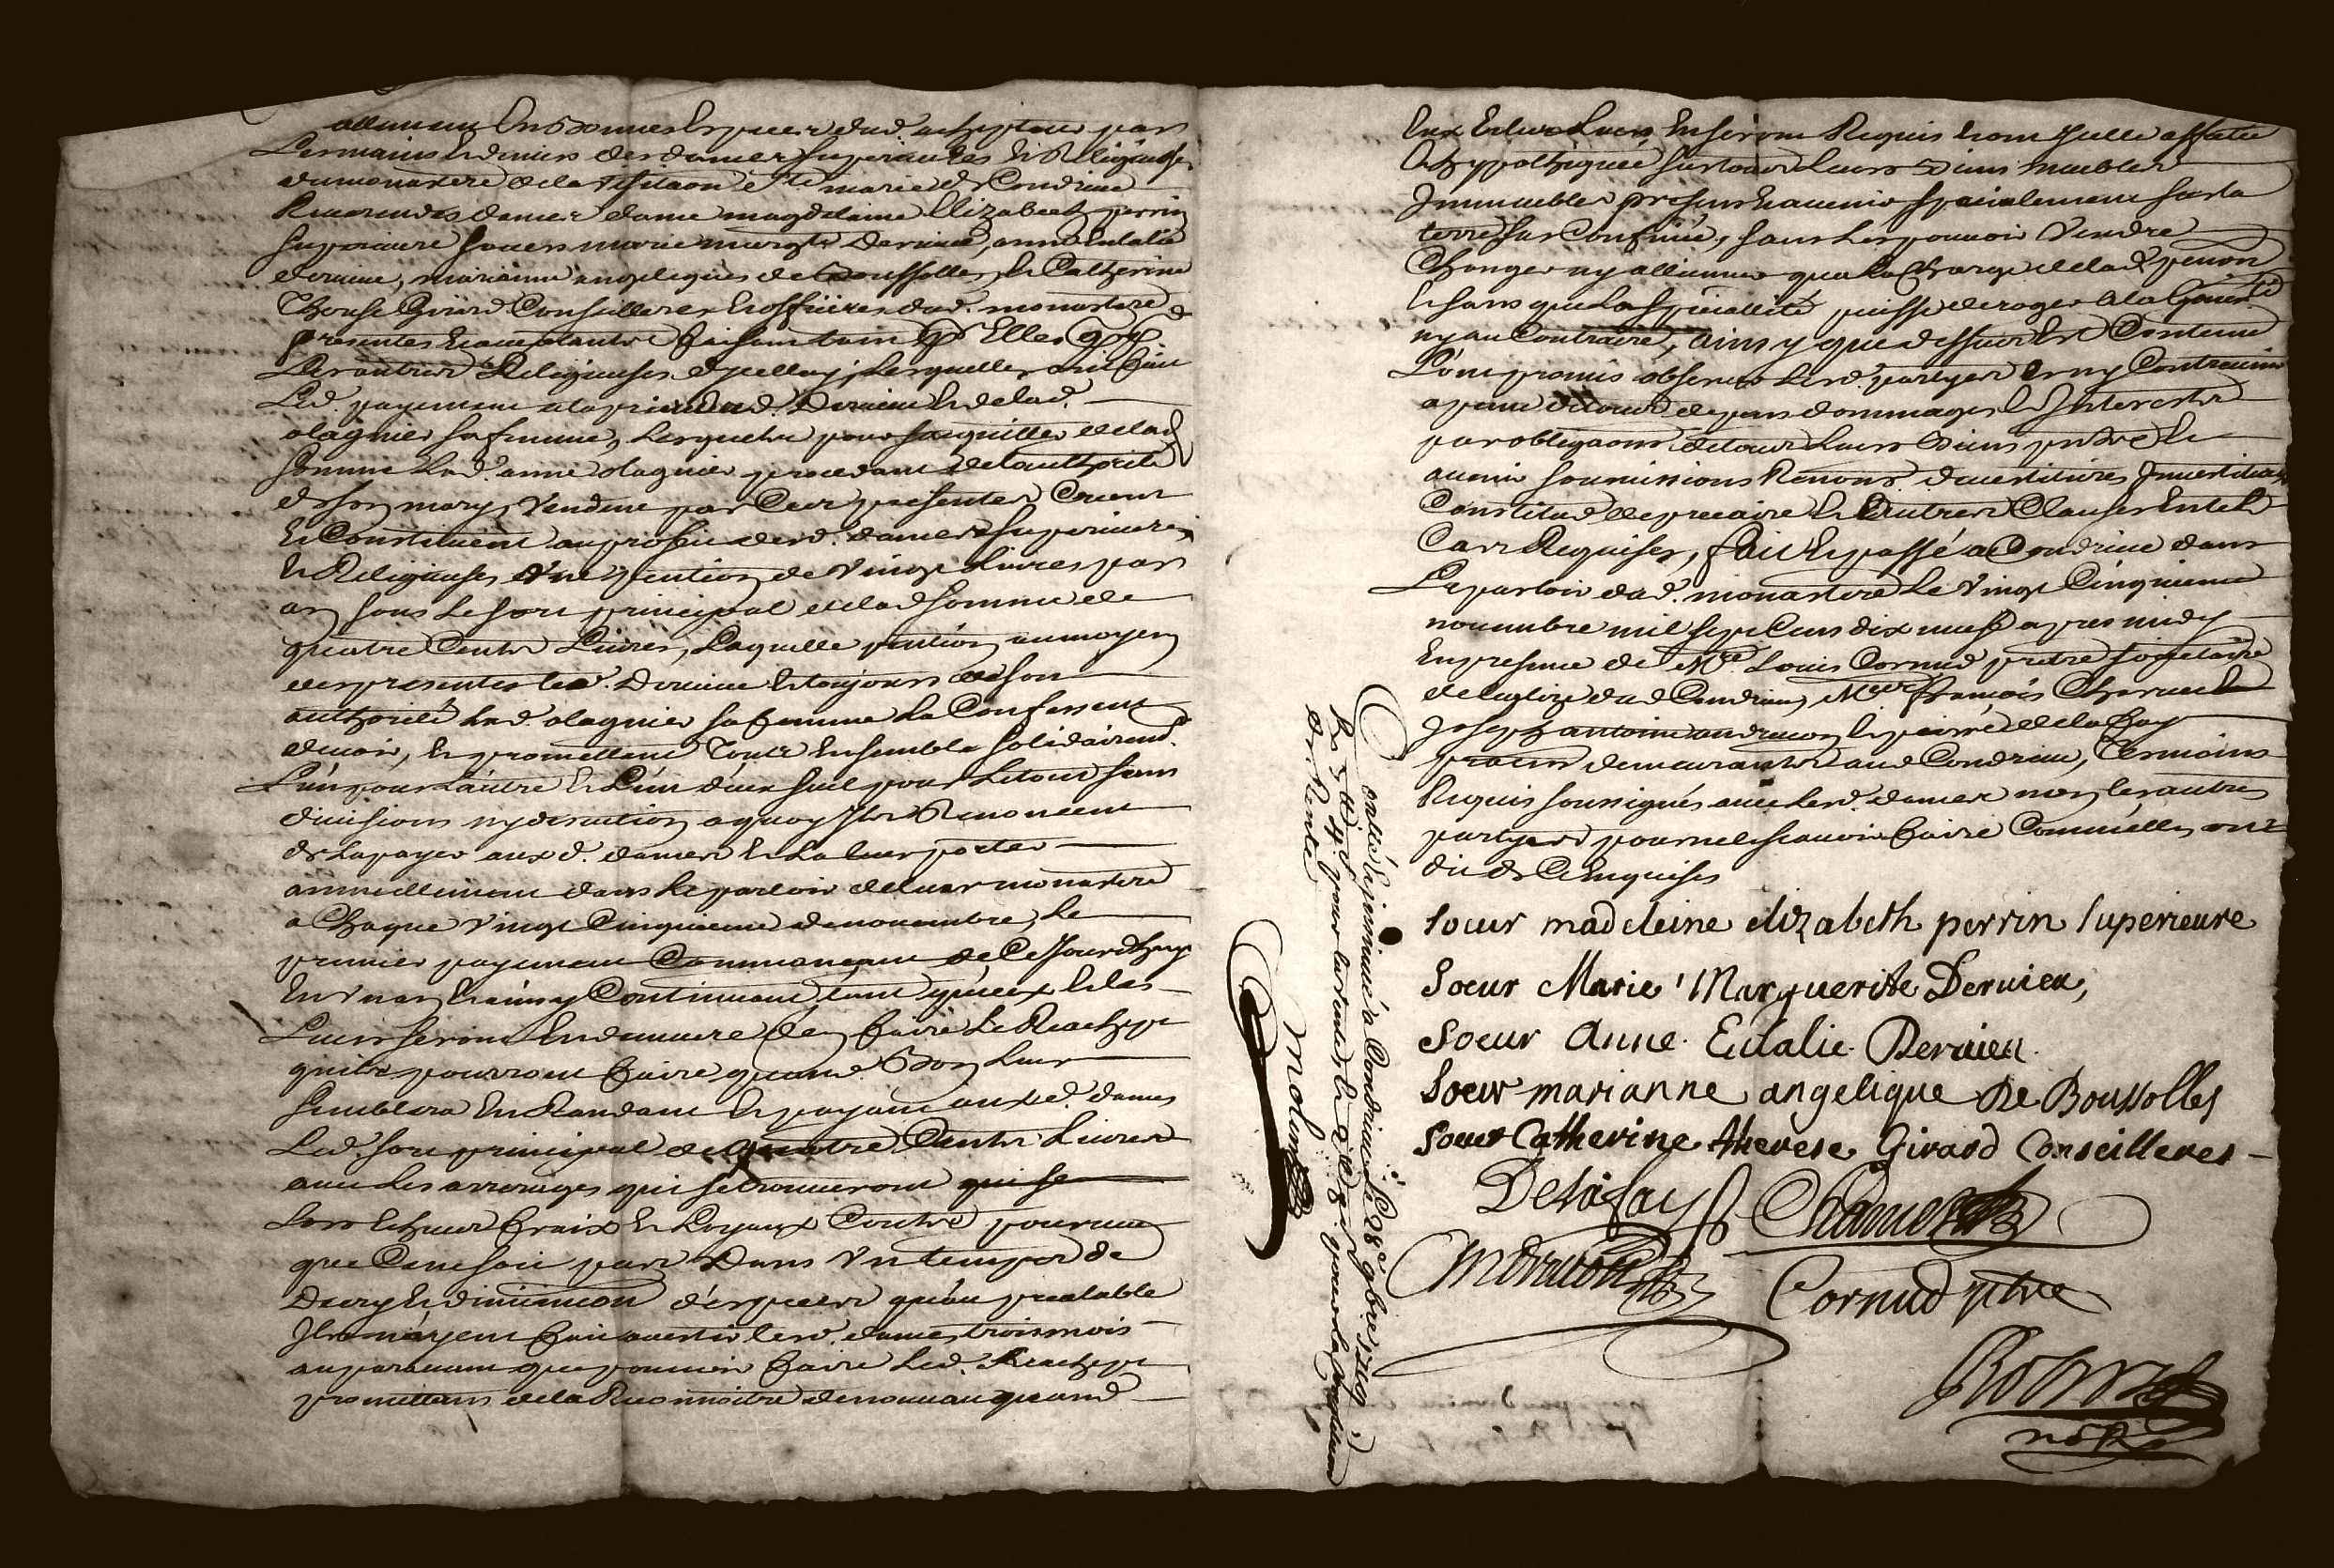 en bonnes especes dud. achepteur par
Les mains et deniers des dames superieures et Religieuses
du monastere de la visitaon Ste marie de Condrieu
Reverendes dames dame magdelaine Elizabeth perrin
superieure soeurs marie margte Dervieu, anne eulalie
dervieu, marianne angelique de Boussolles, et Catherine
Therese Girard Conseilleres et officieres dud. monastere
presentes et acceptantes faisant tant pr Elles que pr
Les autres Religieuses dycelluy, Lesquelles ont fait
Led. payement a la priere dud. Dervieu et de lad.
olagnier sa femme, Lesquels pour sacquitter de lad.
somme Lad. anne olagnier procedant de lauthorité
de son mary, Vendent par Ces presentes Créent
et Constituent au profit desd. dames superieures
et Religieuses Une pention de Vingt Livres par
an sous Le sort principal de lad. somme de
quatre Cents Livres, Laquelle pention au moyen
des presentes led. Dervieu et toujours de son
authorité Lad. olagnier sa femme La Confessent
devoir, et promettent Tous Ensemble solidairemt.
L'un pour L'autre et L'un d'eux seul pour Le tout sans
division ny discution a quoy Ils Renoncent
de La payer auxd. dames et La leur porter
annuellement dans Le parloir de leur monastere
a Chaque Vingt Cinquieme de novembre, Le
premier payement Commenceant de Ce Jourdhuy
En Un an et ainsy Continuant tant qu'eux et les
Leurs seront En demeure den faire Le Reachept
quils pourront faire quand Bon Leur
semblera En Rendant et payant auxd. dames
Led. sort principal de quatre Cents Livres
avec Les arrerages qui se trouveront
Lors et tous fraix et Loyaux Couts pourveu
que Ce ne soit pas Dans Un temps de
Decry et diminuon d'especes qu'au prealable
Ils n'ayent fait avertir lesd. dames trois mois
auparavant que pouvoir faire Led. Reachept
promettans de la Reconnoitre de nouveau quand
Eux et Les Leurs En seront Requis et ont Icelle assise
et hypothequée sur tous Leurs Biens meubles
Immeubles presens et avenir specialement sur la
terre sus Confinée, sans Les pouvoir Vendre
Changer ny alliener qua La Charge de lad. pention
et sans que La specialité puisse deroger a la generalité
ny au Contraire, ainsy que dessus est Contenu
L'ont promis observer Lesd. partyes et ny Contrevenir
a peine de tous depens dommages et Interests
par obligaons de tous Leurs Biens pnts et
avenir soumissions Renons devestitures Investitures
Constitud de precaire et autres Clauses En tel
Cas Requises, fait et passé a Condrieu dans
Le parloir dud. monastere Le Vingt Cinquieme
novembre mil sept Cens dix neuf apres midy
En presence de Mre Louis Cornud pretre sociétaire
de leglize dud Condrieu, François Charvet
Joseph antoine andrieu et pierre de la fay
demeurants aud Condrieu, Temoins
Requis soussignés avec lesd. dames non les autres
partyes pour ne le scavoir faire Comme elles ont
dit de Ce Enquises
Soeur madeleine elizabeth perrin superieure
Soeur Marie Marguerite Dervieu,
Soeur Anne Eulalie Dervieu
Soeur marianne angelique De Boussolles
soeur Catherine therese Girard Conseilleres
Delafay Charvet
Cornud ptre
nore
Controlé et insinué a Condrieu Le 28e 9bre 1719
de Vente
Molin